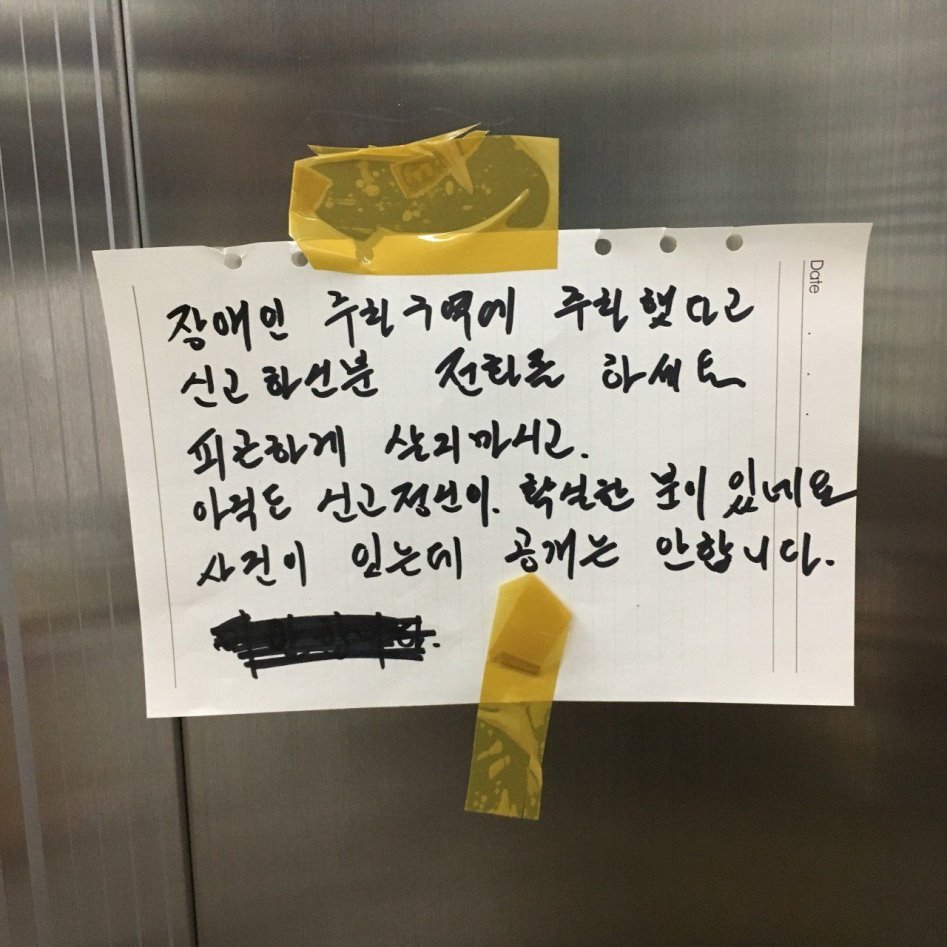 장애인 주차구역에 주차했다고
신고하신분 전화를 하세요
피곤하게 살지마시고.
아직도 신고정신이. 확실한 분이 있네요
사진이 있는데 공개는 안합니다.
Date